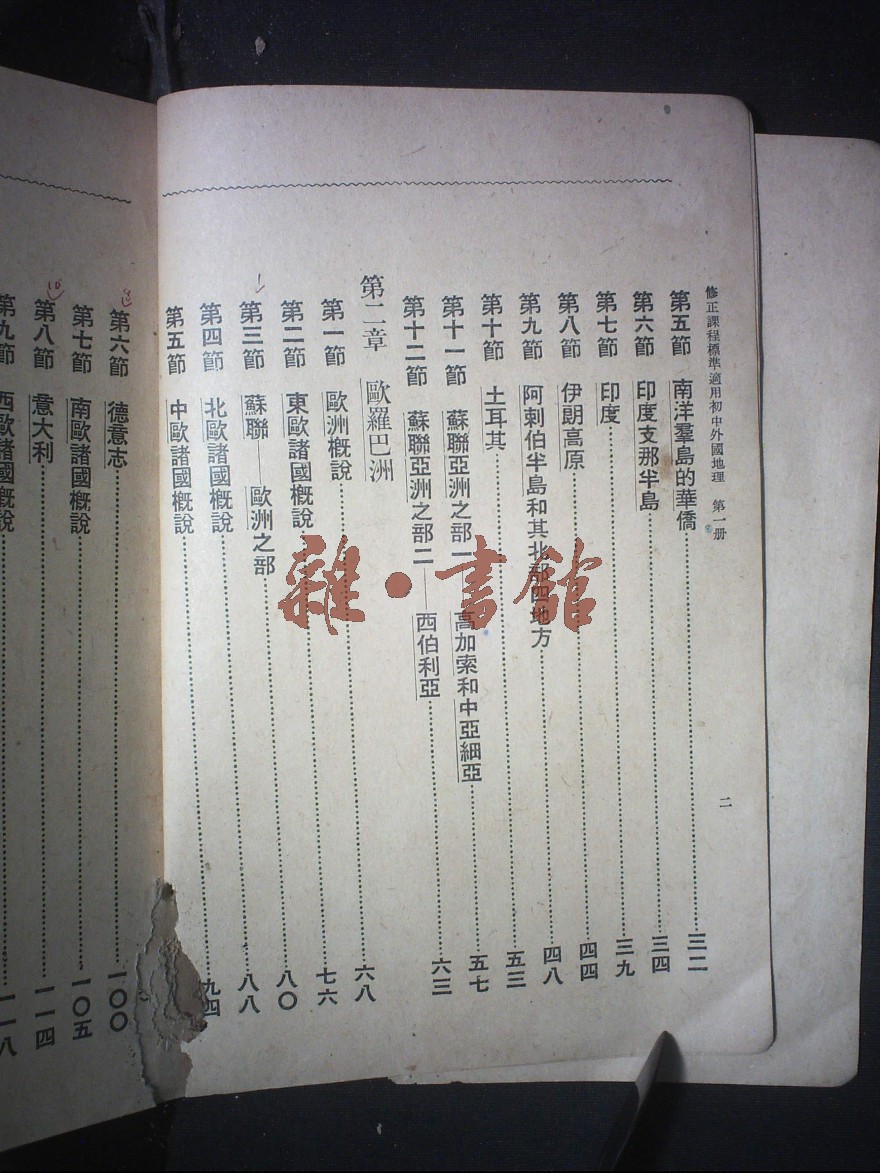 修正課程標準適用初中外國地理 第一册
二
第五節 南洋羣島的華僑……三二
第六節 印度支那半島……三四
第七節 印度……三九
第八節 伊朗高原……四四
第九節 阿剌伯半島和其北部四地方……四八
第十節 土耳其……五三
第十一節 蘇聯亞洲之部一——高加索和中亞細亞……五七
第十二節 蘇聯亞洲之部二——西伯利亞……六三
第二章 歐羅巴洲
第一節 歐洲概說……六八
第二節 東歐諸國概說……七六
第三節 蘇聯——歐洲之部……八〇
第四節 北歐諸國概說……八八
第五節 中歐諸國概說……九四
第六節 德意志……一〇〇
第七節 南歐諸國概說……一〇五
第八節 意大利……一一四
第九節 西歐諸國概說……一一八
雜·書館